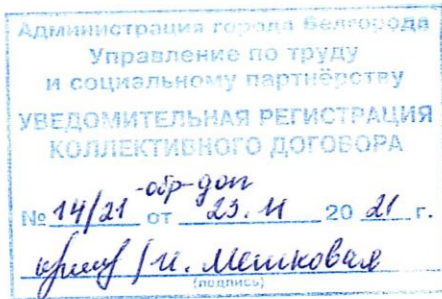 Администрация города Белгорода
Управление по труду
и социальному партнёрству
УВЕДОМИТЕЛЬНАЯ РЕГИСТРАЦИЯ
КОЛЛЕКТИВНОГО ДОГОВОРА
-обр-доп
№ 14/21 от 23.11 20 21 г.
/ И. Мешковая
(подпись)